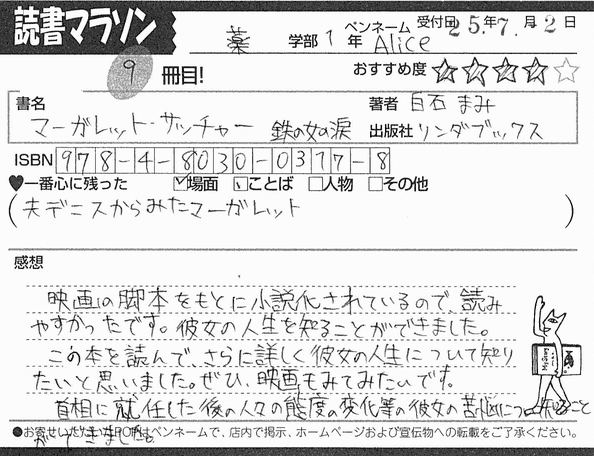 読書マラソン
薬 学部 1 年 ペンネーム Alice 受付日 25年7月2日
9 冊目! おすすめ度
書名 マーガレット・サッチャー 鉄の女の涙
著者 白石 まみ
出版社 リンダブックス
ISBN 978-4-8030-0317-8
♥一番心に残った ☑場面 ☑ことば □人物 □その他
(夫デニスからみたマーガレット)
感想
映画の脚本をもとに小説化されているので、読み
やすかったです。彼女の人生を知ることができました。
この本を読んで、さらに詳しく彼女の人生について知り
たいと思いました。ぜひ、映画もみてみたいです。
首相に就任した後の人々の態度の変化等の彼女の苦悩について知ること
ができました。
●お寄せいただいたPOPはペンネームで、店内で掲示、ホームページおよび宣伝物への転載をご了承ください。